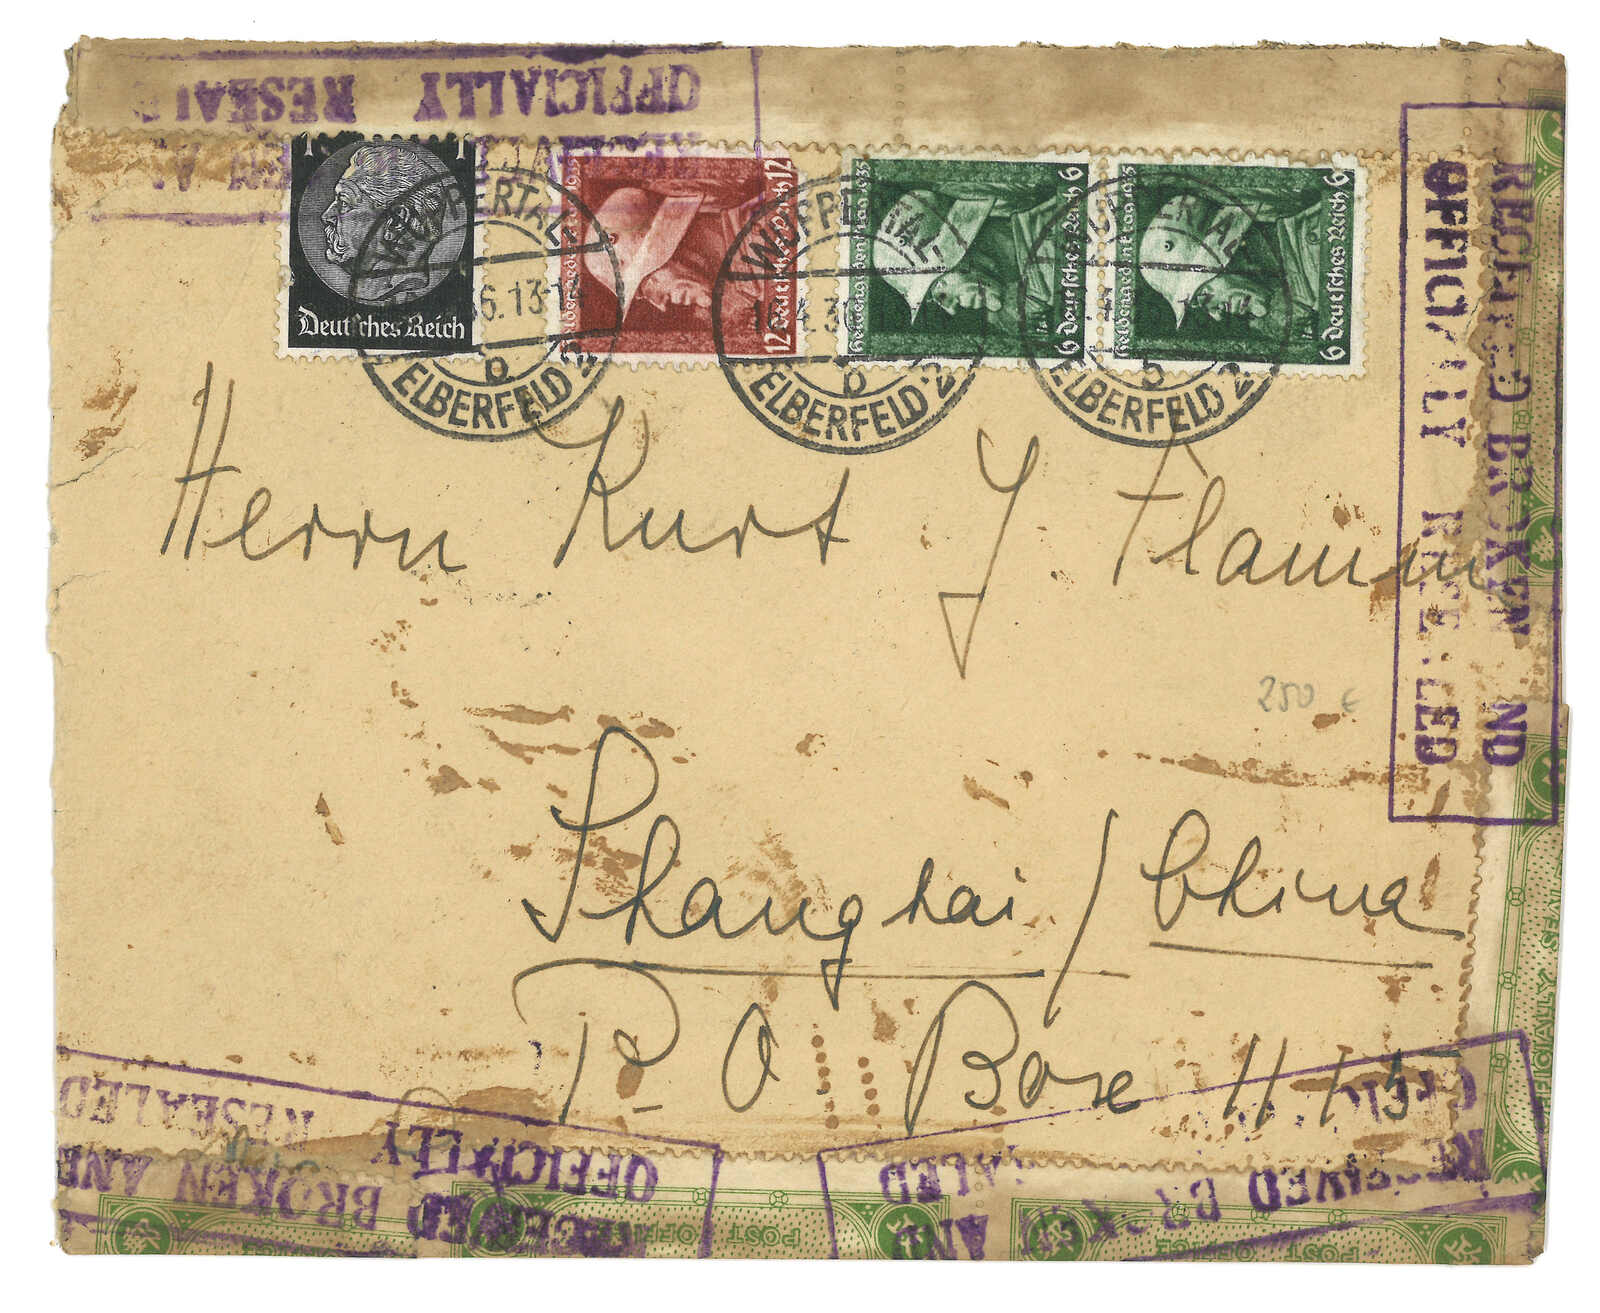 OFFICIALLY
1 1
Deutsches Reich
Heldengedenktag 1935
12 Deutsches Reich 12
Heldengedenktag 1935
6 Deutsches Reich 6
Heldengedenktag 1935
6 Deutsches Reich 6
WUPPERTAL-
36.13-14
b
ELBERFELD 2
WUPPERTAL-
b
ELBERFELD 2
WUPPERTAL-
b
ELBERFELD 2
RECEIVED BROKEN AND
OFFICIALLY RESEALED
Herrn Kurt J. Flamm
250 €
Shanghai / China
P. O. Box 1115
RECEIVED BROKEN AND
OFFICIALLY RESEALED
RECEIVED BROKEN AND
POST OFFICE
POST OFFICE
OFFICIALLY SEALED